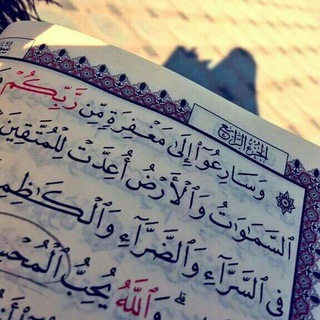 الجزء الرابع
وَسَارِعُوٓا۟ إِلَىٰ مَغْفِرَةٍ مِّن رَّبِّكُمْ
ٱلسَّمَـٰوَٰتُ وَٱلْأَرْضُ أُعِدَّتْ لِلْمُتَّقِينَ
فِى ٱلسَّرَّآءِ وَٱلضَّرَّآءِ وَٱلْكَـٰظِمِ
وَٱللَّهُ يُحِبُّ ٱلْمُحْسِ